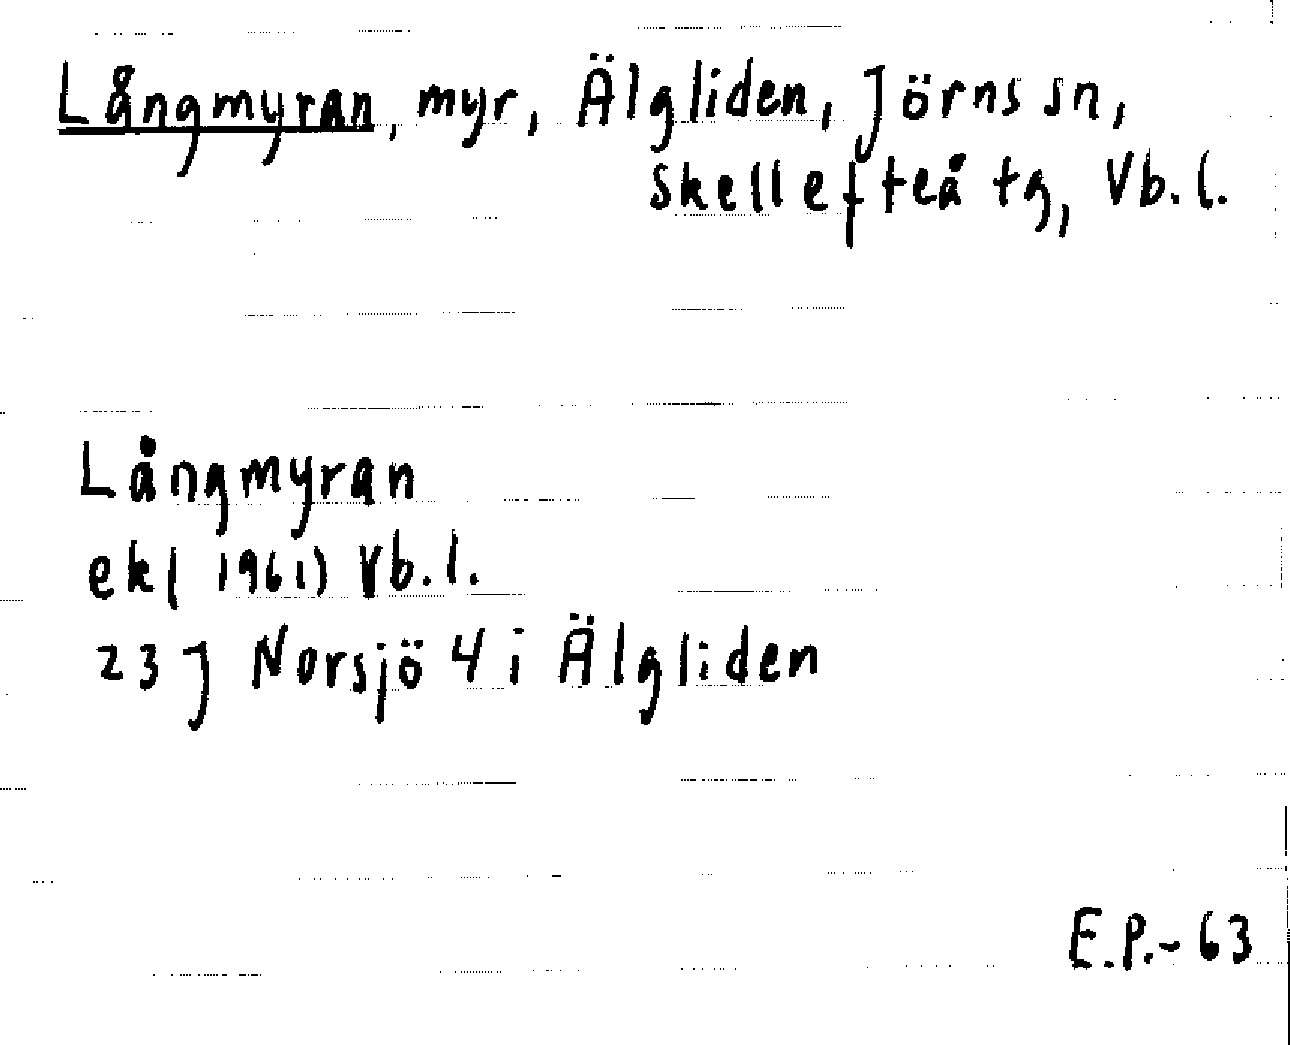 Långmyran, myr, Älgliden, Jörns sn,
Skellefteå tg, Vb. l.
Långmyran
ek( 1961) Vb. l.
23 J Norsjö 4 i Älgliden
E.P.-63